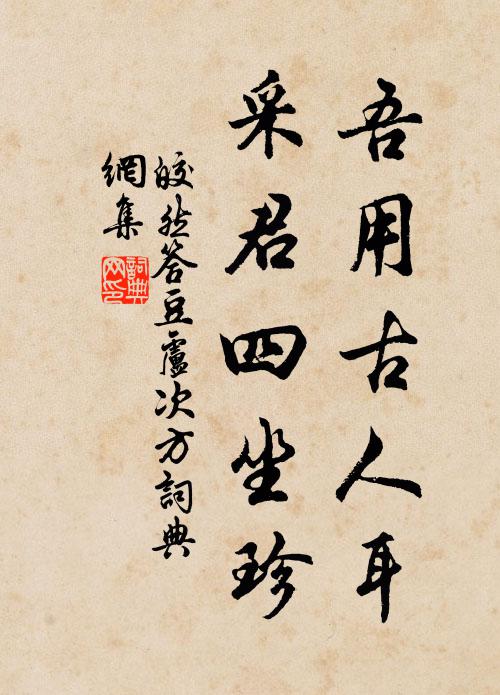 吾用古人耳
采君四坐珍
皎然答豆盧次方詞典
網集
詞典
网印